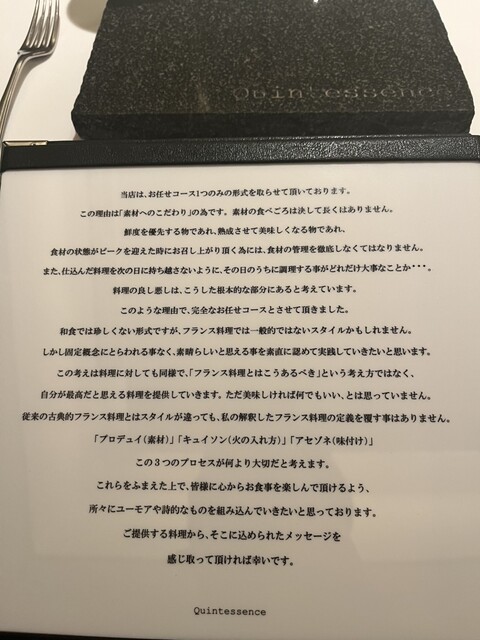 Quintessence
当店は、お任せコース1つのみの形式を取らせて頂いております。
この理由は「素材へのこだわり」の為です。素材の食べごろは決して長くはありません。
鮮度を優先する物であれ、熟成させて美味しくなる物であれ、
食材の状態がピークを迎えた時にお召し上がり頂く為には、食材の管理を徹底しなくてはなりません。
また、仕込んだ料理を次の日に持ち越さないように、その日のうちに調理する事がどれだけ大事なことか・・・。
料理の良し悪しは、こうした根本的な部分にあると考えています。
このような理由で、完全なお任せコースとさせて頂きました。
和食では珍しくない形式ですが、フランス料理では一般的ではないスタイルかもしれません。
しかし固定概念にとらわれる事なく、素晴らしいと思える事を素直に認めて実践していきたいと思います。
この考えは料理に対しても同様で、「フランス料理とはこうあるべき」という考え方ではなく、
自分が最高だと思える料理を提供していきます。ただ美味しければ何でもいい、とは思っていません。
従来の古典的フランス料理とはスタイルが違っても、私の解釈したフランス料理の定義を覆す事はありません。
「プロデュイ(素材)」「キュイソン(火の入れ方)」「アセゾネ(味付け)」
この3つのプロセスが何より大切だと考えます。
これらをふまえた上で、皆様に心からお食事を楽しんで頂けるよう、
所々にユーモアや詩的なものを組み込んでいきたいと思っております。
ご提供する料理から、そこに込められたメッセージを
感じ取って頂ければ幸いです。
Quintessence